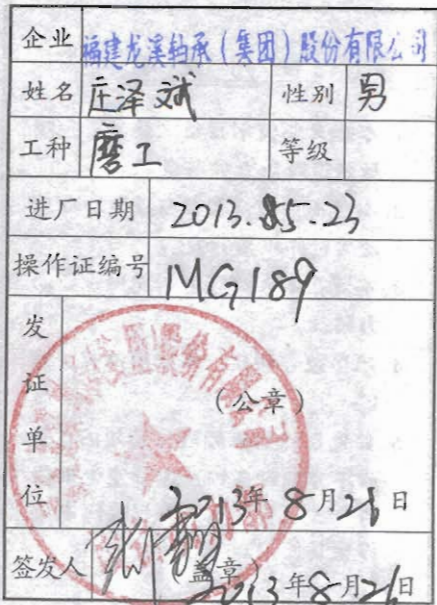 企业 福建龙溪轴承（集团）股份有限公司
姓名 庄泽斌 性别 男
工种 磨工 等级
进厂日期 2013.05.23
操作证编号 MG189
发证单位
（公章）
2013年8月26日
签发人 （盖章） 2013年8月26日